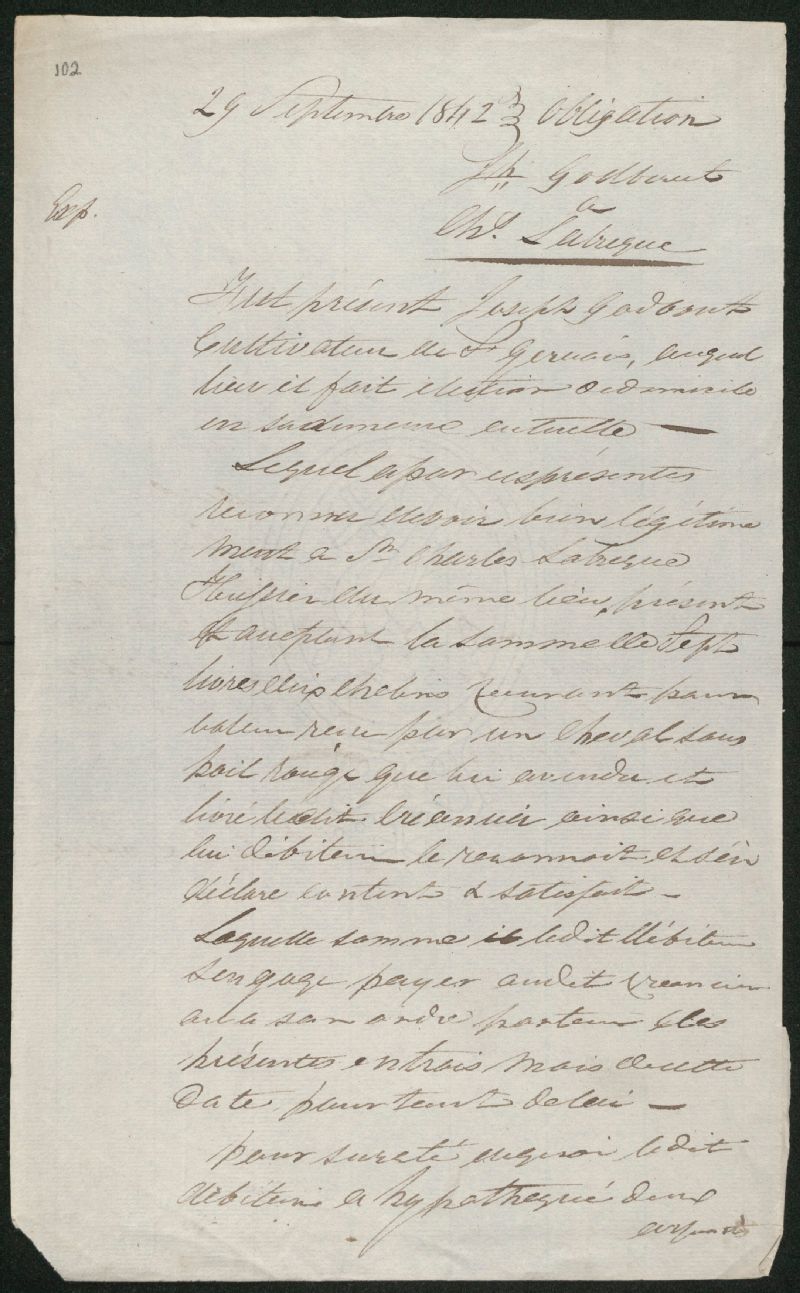 102
29 Septembre 1842 } Obligation
Jh Godbout
Exp.
a
Chs Labreque
Fut présent Joseph Godbout
Cultivateur de St Gervais, auquel
lieu il fait election dedomicile
en sademeure actuelle —
Lequel apar cesprésentes
reconnu devoir bien légitime
ment a Sr Charles Labreque
Huissier du même lieu, présent
& acceptant la somme de Sept
livres dix chelins courant pour
valeur reçu par un Cheval sous
poil rouge que lui avendu et
livré ledit Créancier ainsi que
lui débiteur le reconnoit et s'én
déclare content & satisfait —
Laquelle somme il ledit Débiteur
sengage payer audit Créancier
ou a son ordre porteur des
présentes entrois mois decette
date pourtout delai —
pour sureté dequoi ledit
débiteur a hypothequé deux
arpents